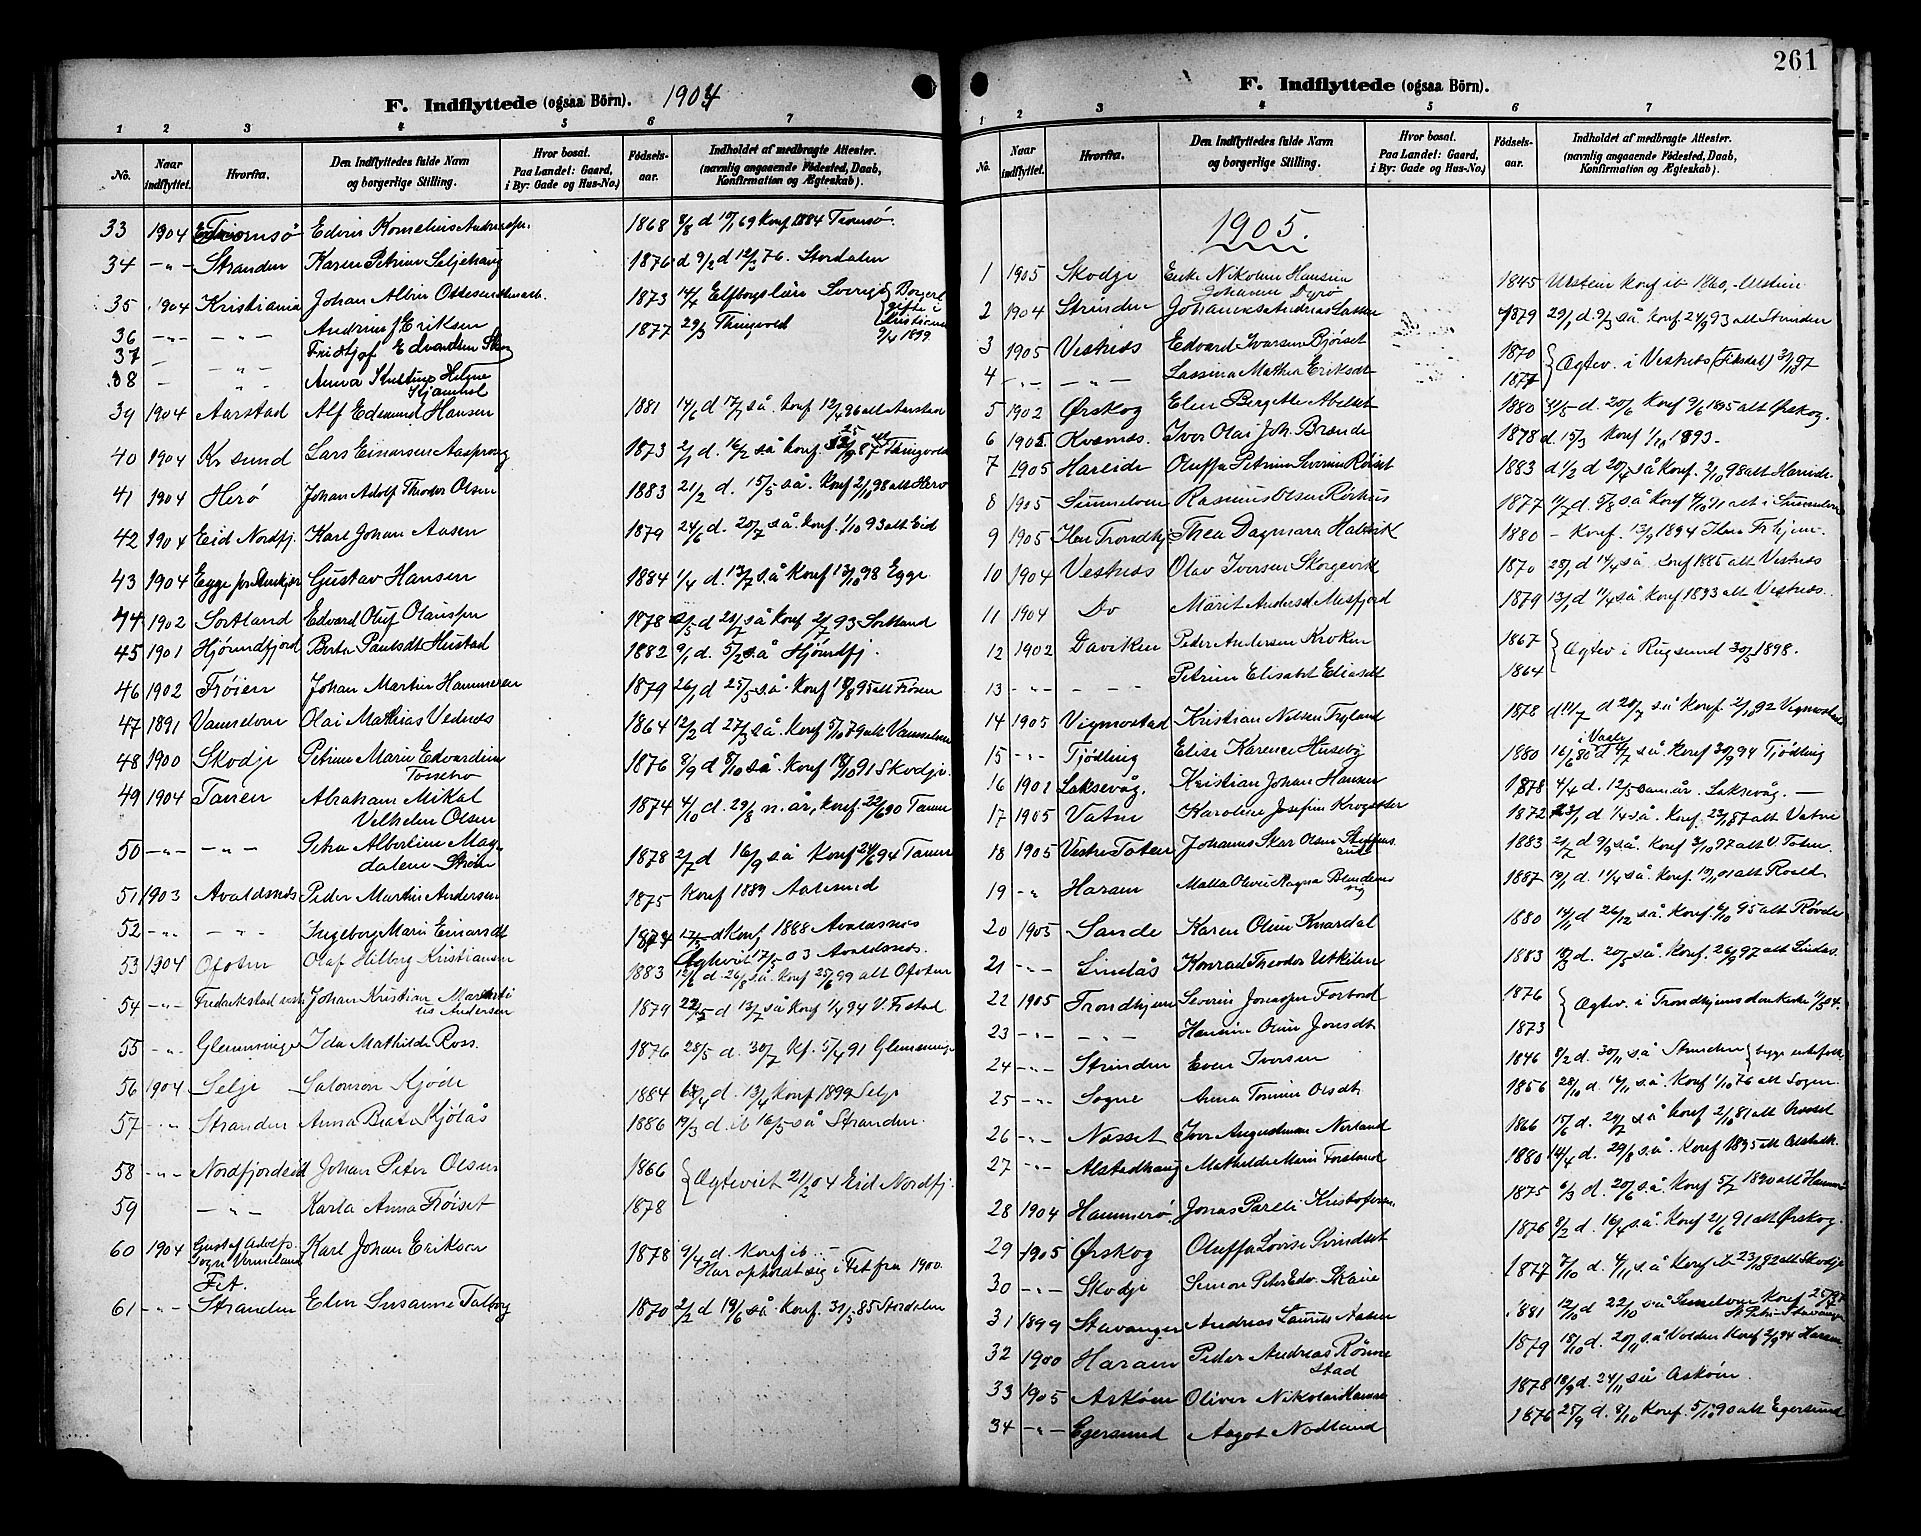 F. Indflyttede (ogsaa Börn). 1904
1 2 3 4 5 6 7
No. Naar indflyttet. Hvorfra. Den Indflyttedes fulde Navn og borgerlige Stilling. Hvor bosat. Paa Landet: Gaard, i By: Gade og Hus-No.) Fødsels-aar. Indholdet af medbragte Attester. (navnlig angaaende Fødested, Daab, Konfirmation og Ægteskab).
33 1904 Tromsö Edvin Kornelius 1868 8/8 d 17/1 69 Konf 1884 Tromsö.
34 -"- Stranden Karen Petrine Seljehaug 1876 d 9/2 d 12/3 76. Stordalen
35 1904 Kristiania Johan Albin Ottesen 1873 14/4 Elfborgslän Sverige
36 -"- -"- Andrine J Eriksen 1877 29/3 Thingvold
37 - " Fridtjof Edvardsen
38 - " Anna
39 1904 Aarstad Alf Edmund Hansen 1881 14/6 d 17/7 så. Konf 12/4 96 alt Aarstad
40 1904 Kr sund Lars Einarsen 1873 2/1 d. 16/2 så konf. Tingvold
41 1904 Herö Johan Adolf Theodor Olsen 1883 21/2 d. 15/5 så. Konf 2/10 98 alt Herö
42 1904 Eid Nordfj. Karl Johan Aasen 1879 24/6 d. 20/7 så. Konf. 1/10 93 alt Eid
43 1904 Egge Gustav Hansen 1884 1/4 d. 13/7 så Konf 13/10 98 Egge.
44 1902 Sortland Edvard Oluf 1878 d så Konf 2/7 93 Sortland
45 1901 Hjörundfjord Berte Paulsdt Hustad 1882 9/1 d. 5/2 så Hjörundfj.
46 1902 Fröien Johan Martin Hammersen 1879 26/1 d 25/5 så. Konf 95 alt Fröien
47 1891 Vannelven Olai Mathias Vednes 1864 12/2 d 27/3 så. Konf 5/10 79 alt Vannelven
48 1900 Skodje Petrine Marie Edvardine
Tossebro 1876 8/9 d 8/10 så. Konf 18/10 91 Skodje
49 1904 Tanen Abraham Mikal
Vilhelm Olsen 1874 4/10 d. 29/8 n. år, konf 22/6 90 Tanen
50 -"- -"- Petra Albertine Mag-
dalene Ström 1878 2/7 d 16/9 så Konf 24/6 94 Tanen
51 1903 Avaldsnes Peder Martin Andersen 1875 Konf 1889 Aalesund
52 -"- -"- Ingeborg Marie Einarsdt Konf 1888 Avaldsnes
Ægtevict 17/5 03 Avaldsnes.
53 1904 Ofoten Olaf Hilberg Kristiansen 1883 d. 26/8 så. Konf 25/6 99 alt Ofoten
54 -"- Fredrikstad Johan Kristian
Andersen 1879 d 13/7 så Konf 1/4 94 V. Fr stad
55 -"- Glemminge Ida Mathilde Ross. 1876 28/5 d. 30/7 Kf. 5/4 91 Glemminge
56 1904 Selje Salomon Kjöde 1884 d. 13/4 Konf 1899 Selje
57 -"- Stranden Anna Beate Kjölås 1886 19/3 d. ib 16/5 så Stranden.
58 -"- Nordfjordeid Johan Peter Olsen 1866 Ægteviet 21/2 04 Eid Nordfj.
59 -"- Karla Anna Fröiset 1878
60 1904 Gustaf Adolfs
Sogn Vermeland Karl Johan Eriksen 1878 9/4 d. Konf ib.
Har opholdt sig i Fet fra 1900.
Fet.
61 -"- Stranden Elen Susanne Talberg 1870 2/2 d 19/6 så. Konf. 31/5 85 Stordalen

261
F. Indflyttede (ogsaa Börn).
1 2 3 4 5 6 7
No. Naar indflyttet. Hvorfra. Den Indflyttedes fulde Navn og borgerlige Stilling. Hvor bosat. Paa Landet: Gaard, i By: Gade og Hus-No.) Fødsels-aar. Indholdet af medbragte Attester. (navnlig angaaende Fødested, Daab, Konfirmation og Ægteskab).
1905.
1 1905 Skodje Enke Nikoline Hansine
Johanne Dyrö 1845 Ulstein Konf ib 1860, Ulstein
2 1904 Strinden Johannes Andreas 1879 29/1 d. 9/3 så Konf 24/9 93 alt Strinden
3 1905 Vestnes Edvard Ivarsen Bjöiset 1870 Ægtev. i Vestnes
4 -"- -"- Lassina Mathea Eriksdt 1877
5 1902 Ørskog Elen Bergitte 1880 d. 20/6 Konf 9/6 1895 alt Ørskog.
6 1905 Kvernes. Iver Olai Joh. Brænde 1878 d 15/3 Konf 1/10 1893.
7 1905 Hareide Oluffa Petrine Severine Röiset 1883 d 1/2 d 20/4 så Konf. 2/10 98 alt Hareide.
8 1905 Sunnelven Rasmus Olsen Rörhus 1877 d. så Konf 91 alt i Sunnelven
9 1905 Ilen Trondhj. Thea Dagmara 1880 - Konf. 13/9 1894 Ilen Trhjem
10 1904 Vestnes Olav Iversen Skorgevik 1870 28/1 d 14/4 så Konf 1885 alt Vestnes
11 1904 Do Marit Andersd Misfjord 1879 13/1 d 11/4 så. Konf 1893 alt Vestnes.
12 1902 Daviken Peder Andersen Kroken 1867 Ægtev i Rugsund 30/5 1898.
13 -"- - - Petrine Elisabet Eliasdt 1864
14 1905 Vigmostad Kristian Nilsen Tryland 1878 d 11/7 d 28/7 så Konf. 2/10 92 Vigmostad
15 -"- Tjödling Elise Karence Huseby 1880 16/6 80 d så. Konf 30/9 94 Tjödling
16 1901 Laksevåg. Kristian Johan Hansen 1878 4/4 d. 12/5 sam. år. Laksevåg. —
17 1905 Vatne Karoline Josefine Krogsæter 1872 d. så. Konf. 87 alt Vatne
18 1905 Vestre Toten Johannes Skar Olsen 1883 2/7 d 9/9 så. Konf 3/10 97 alt V. Toten.
19 -" Haram Malla Olivie Ragna 1887 d. 11/4 så. Konf. 01 alt Roald
20 1905 Sande Karen Oline Knardal 1880 14/11 d 26/12 så. Konf. 95 alt Røvde
21 -"- Lindås Konrad Theodor Utkilen 1883 d. 20/5 så. Konf. 26/9 97 alt Lindås.
22 1905 Trondhjem Severin Forbord 1876 Ægtev. i Trondhjems domkirke
23 -"- -"- Hansine Oline Jonsdt 1873
24 -"- Strinden Even Iversen 1846 8/2 d. 30/11 så Strinden begge enkefolk
25 -"- Sogne Anna Tomine Olsdt 1856 28/10 d. 16/11 så. Konf 1/10 76 alt Sogne.
26 -"- Næsset Iver Augustinus Nerland 1866 17/6 d. så konf 2/10 81 alt Næsset
27 -"- Alstadhaug Mathilde Marie Forsland 1880 14/4 d. 29/8 så. Konf 1895 alt Alstadh.
28 1904 Hammerö Jonas Pareli Kristofersen 1875 6/3 d. 20/6 så. Konf 5/7 1890 alt Hammerö
29 1905 Ørskog Oluffa Lovise Svindset 1876 8/2 d. 16/4 så Konf 21/6 91 alt Ørskog.
30 -"- Skodje Simon Peter Edv. Skåre 1877 7/10 d. 4/11 så Konf ib 92 alt Skodje
31 1899 Stavanger Andreas Laurits Aasen 1881 12/10 d 22/10 så Sunelven Konf
St. Petri Stavanger
32 1900 Haram Peder Andreas Rönne-
stad 1879 18/10 d. 20/11 så Volden Konf 94 Haram
33 1905 Asköen Oliver Nikolai Hansen 1878 d. 24/11 så Asköen.
34 -"- Egersund Aagot Nodland 1876 25/9 d. 8/10 Konf. 5/10 90 alt Egersund